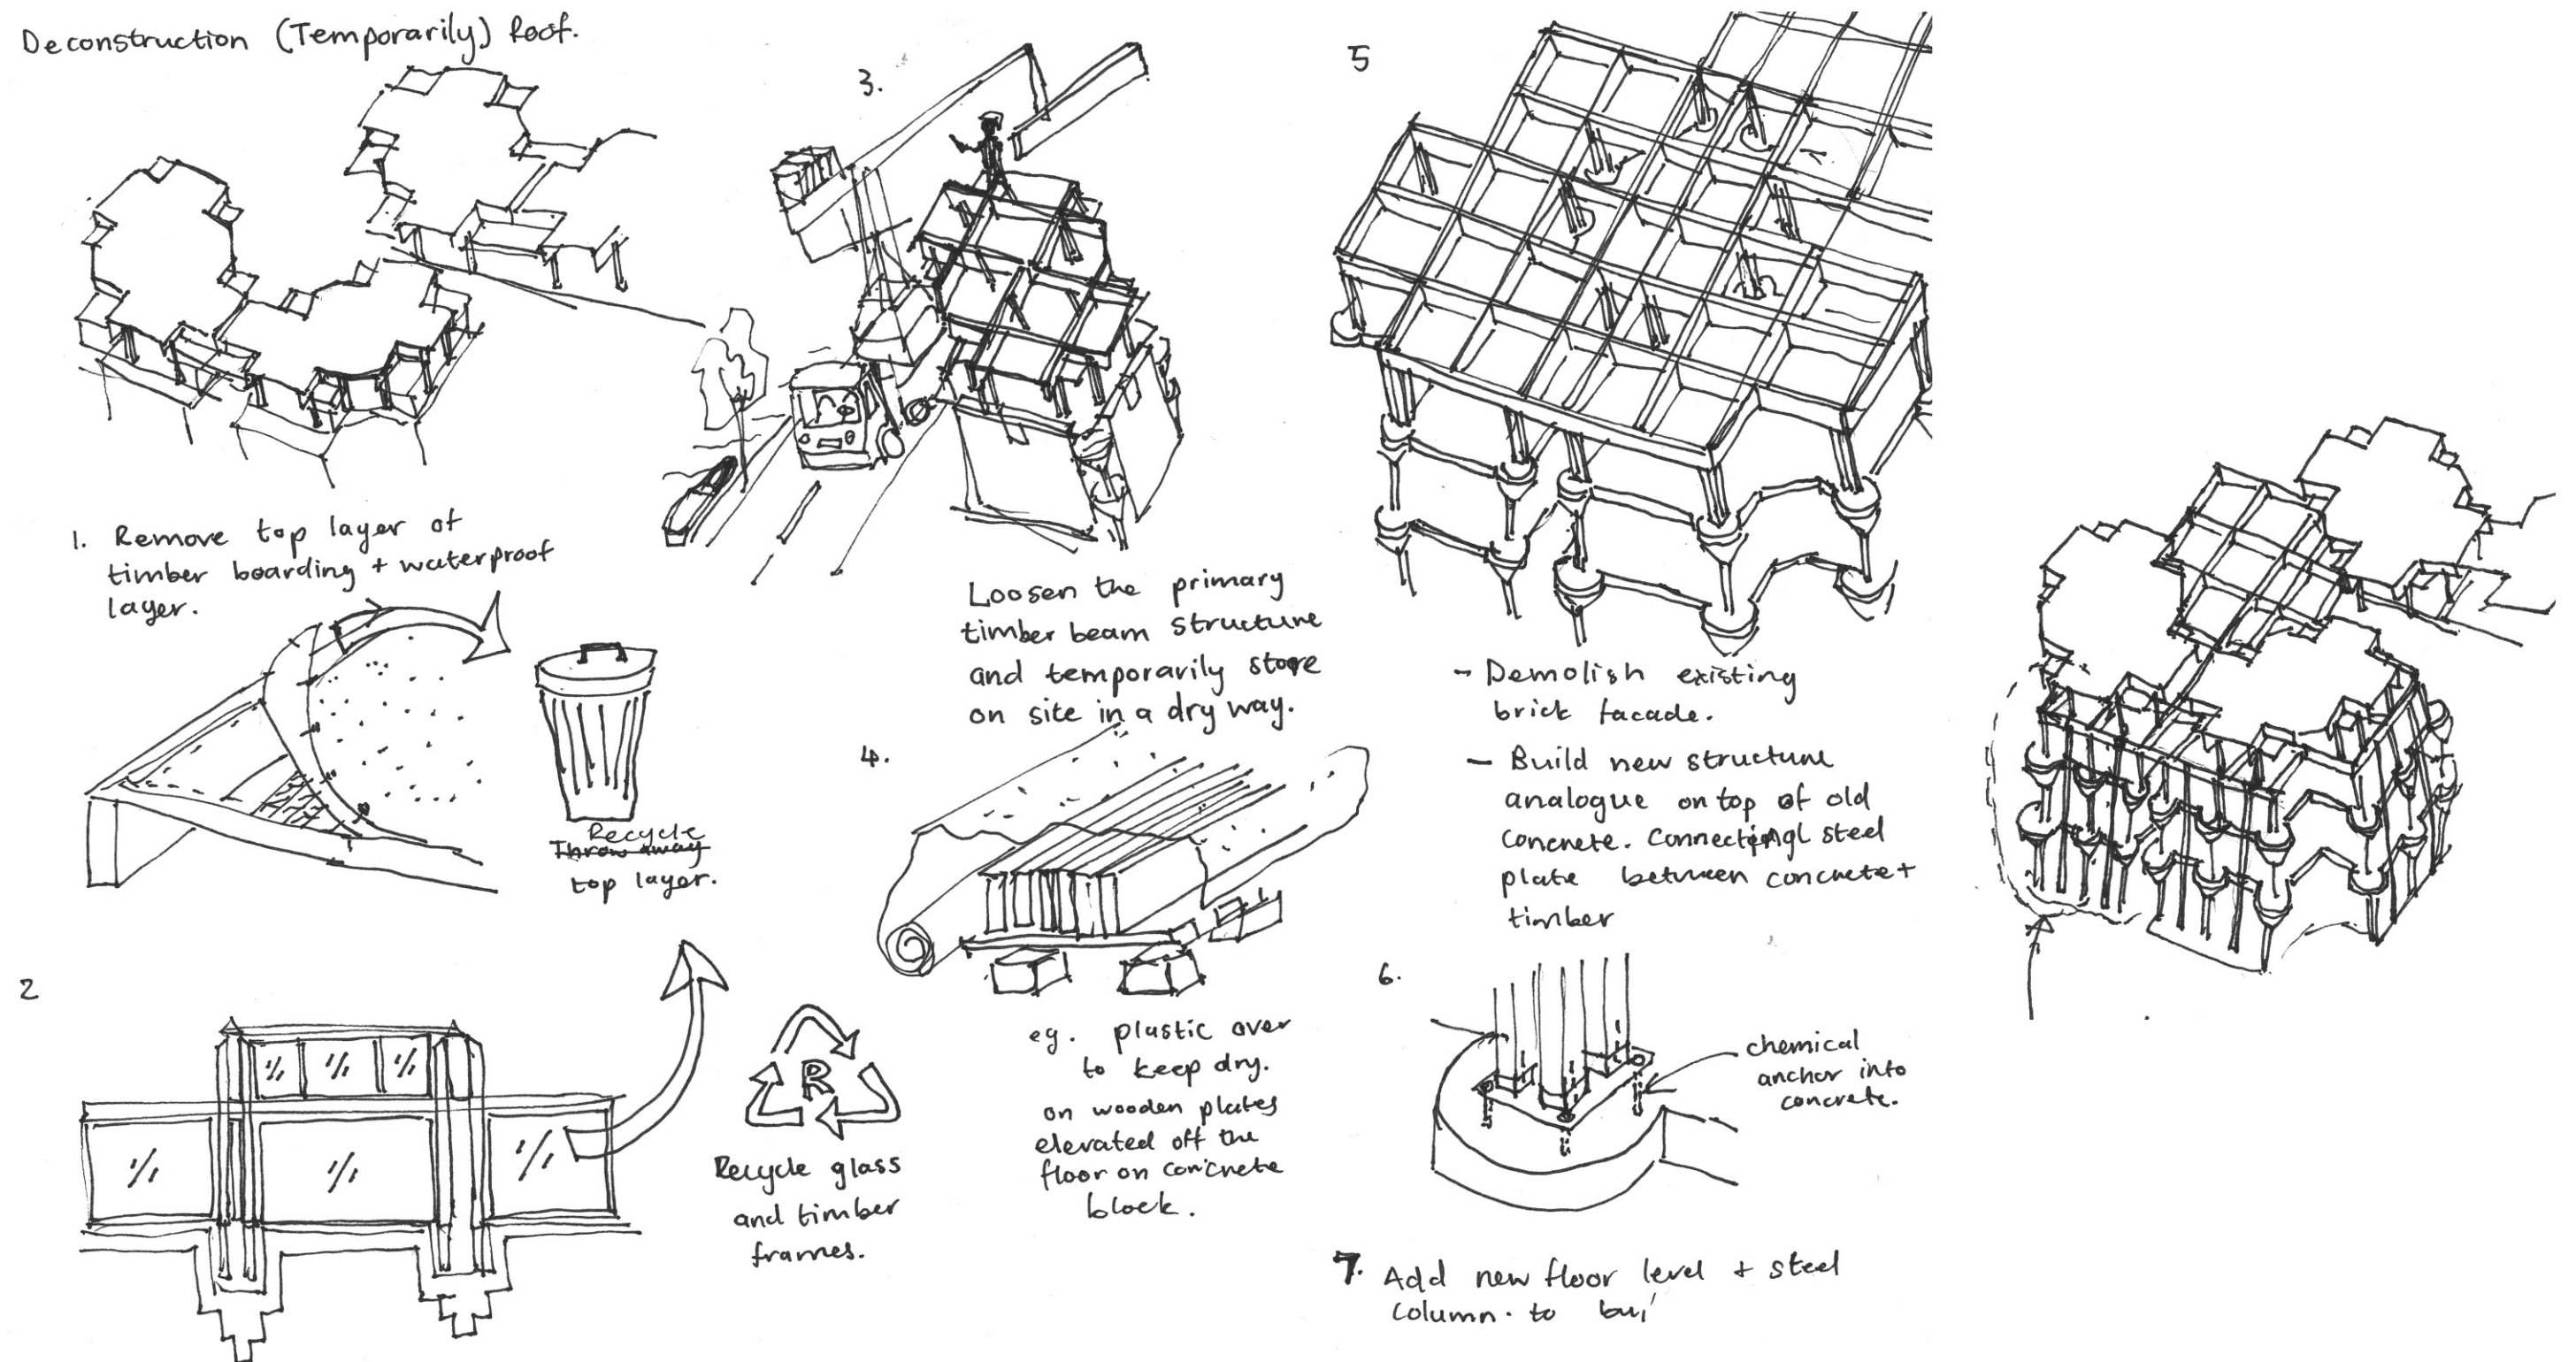 Deconstruction (Temporarily) Roof.
1. Remove top layer of
timber boarding + waterproof
layer.
Recycle
Throw away
top layer.
2
R
Recycle glass
and timber
frames.
3.
Loosen the primary
timber beam structure
and temporarily store
on site in a dry way.
4.
eg. plastic over
to keep dry.
on wooden plates
elevated off the
floor on concrete
block.
5
- Demolish existing
brick facade.
- Build new structure
analogue on top of old
concrete. Connecting steel
plate between concrete +
timber
6.
chemical
anchor into
concrete.
7. Add new floor level + steel
column. to bui